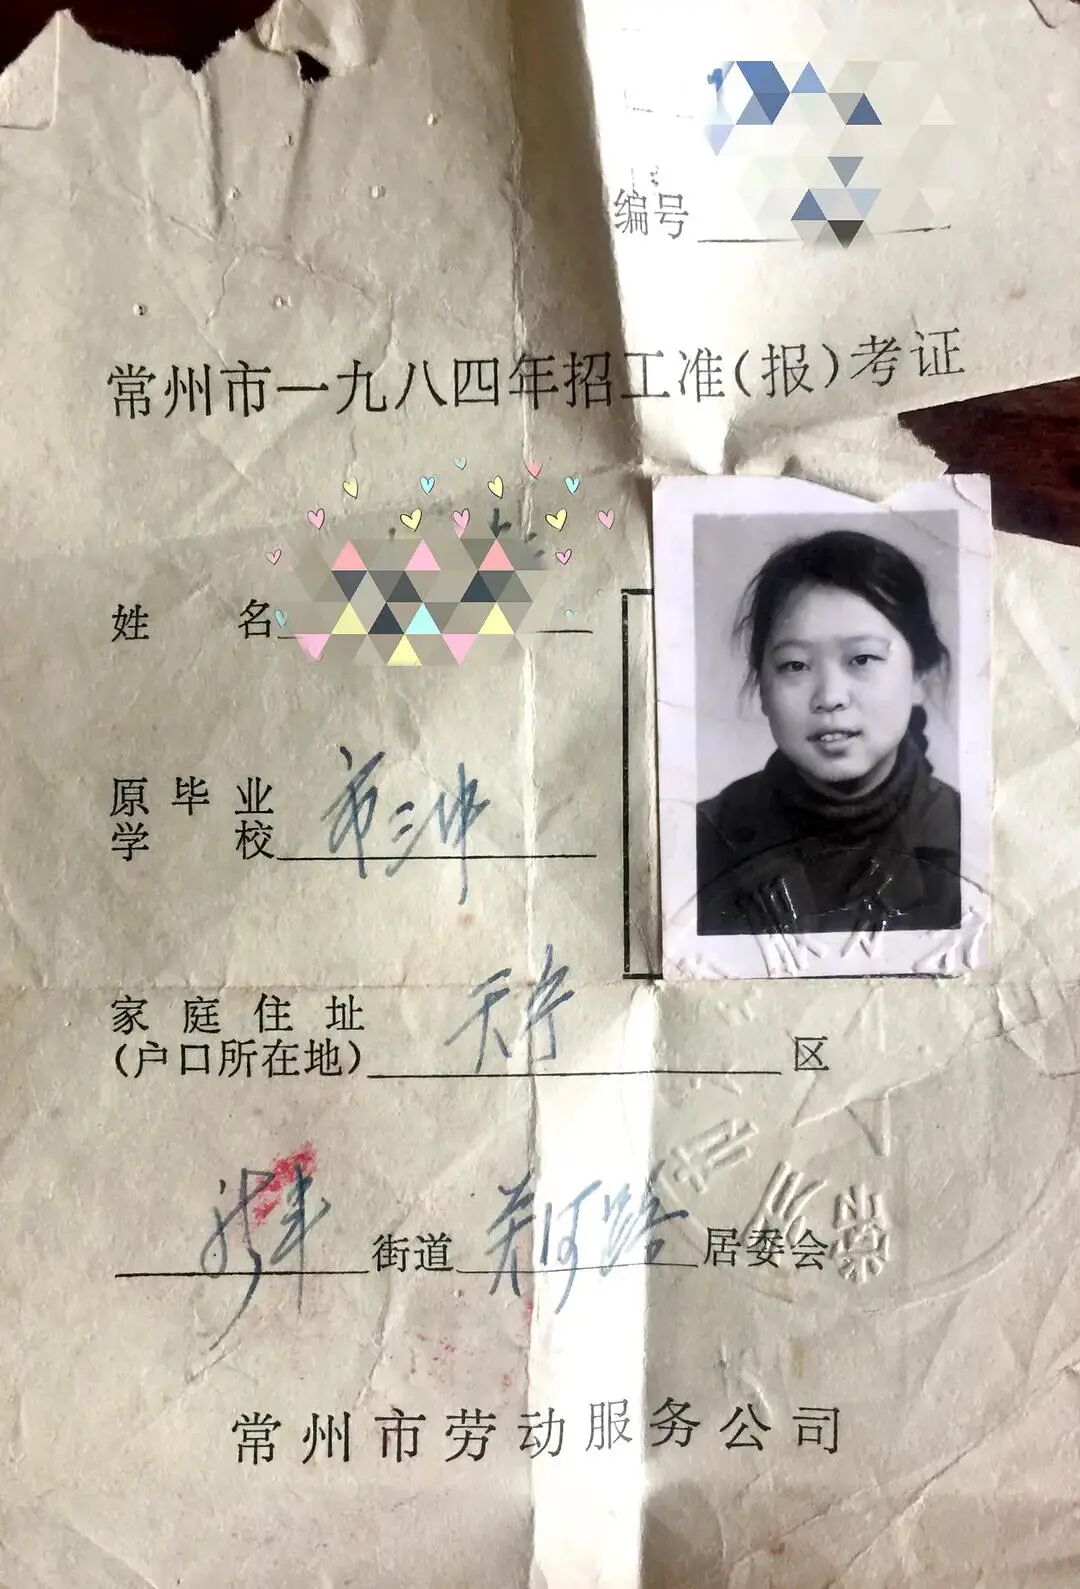 编号
常州市一九八四年招工准(报)考证
姓名
原毕业
学校 市三中
家庭住址
(户口所在地) 天宁 区
街道 关河路 居委会
常州市劳动服务公司